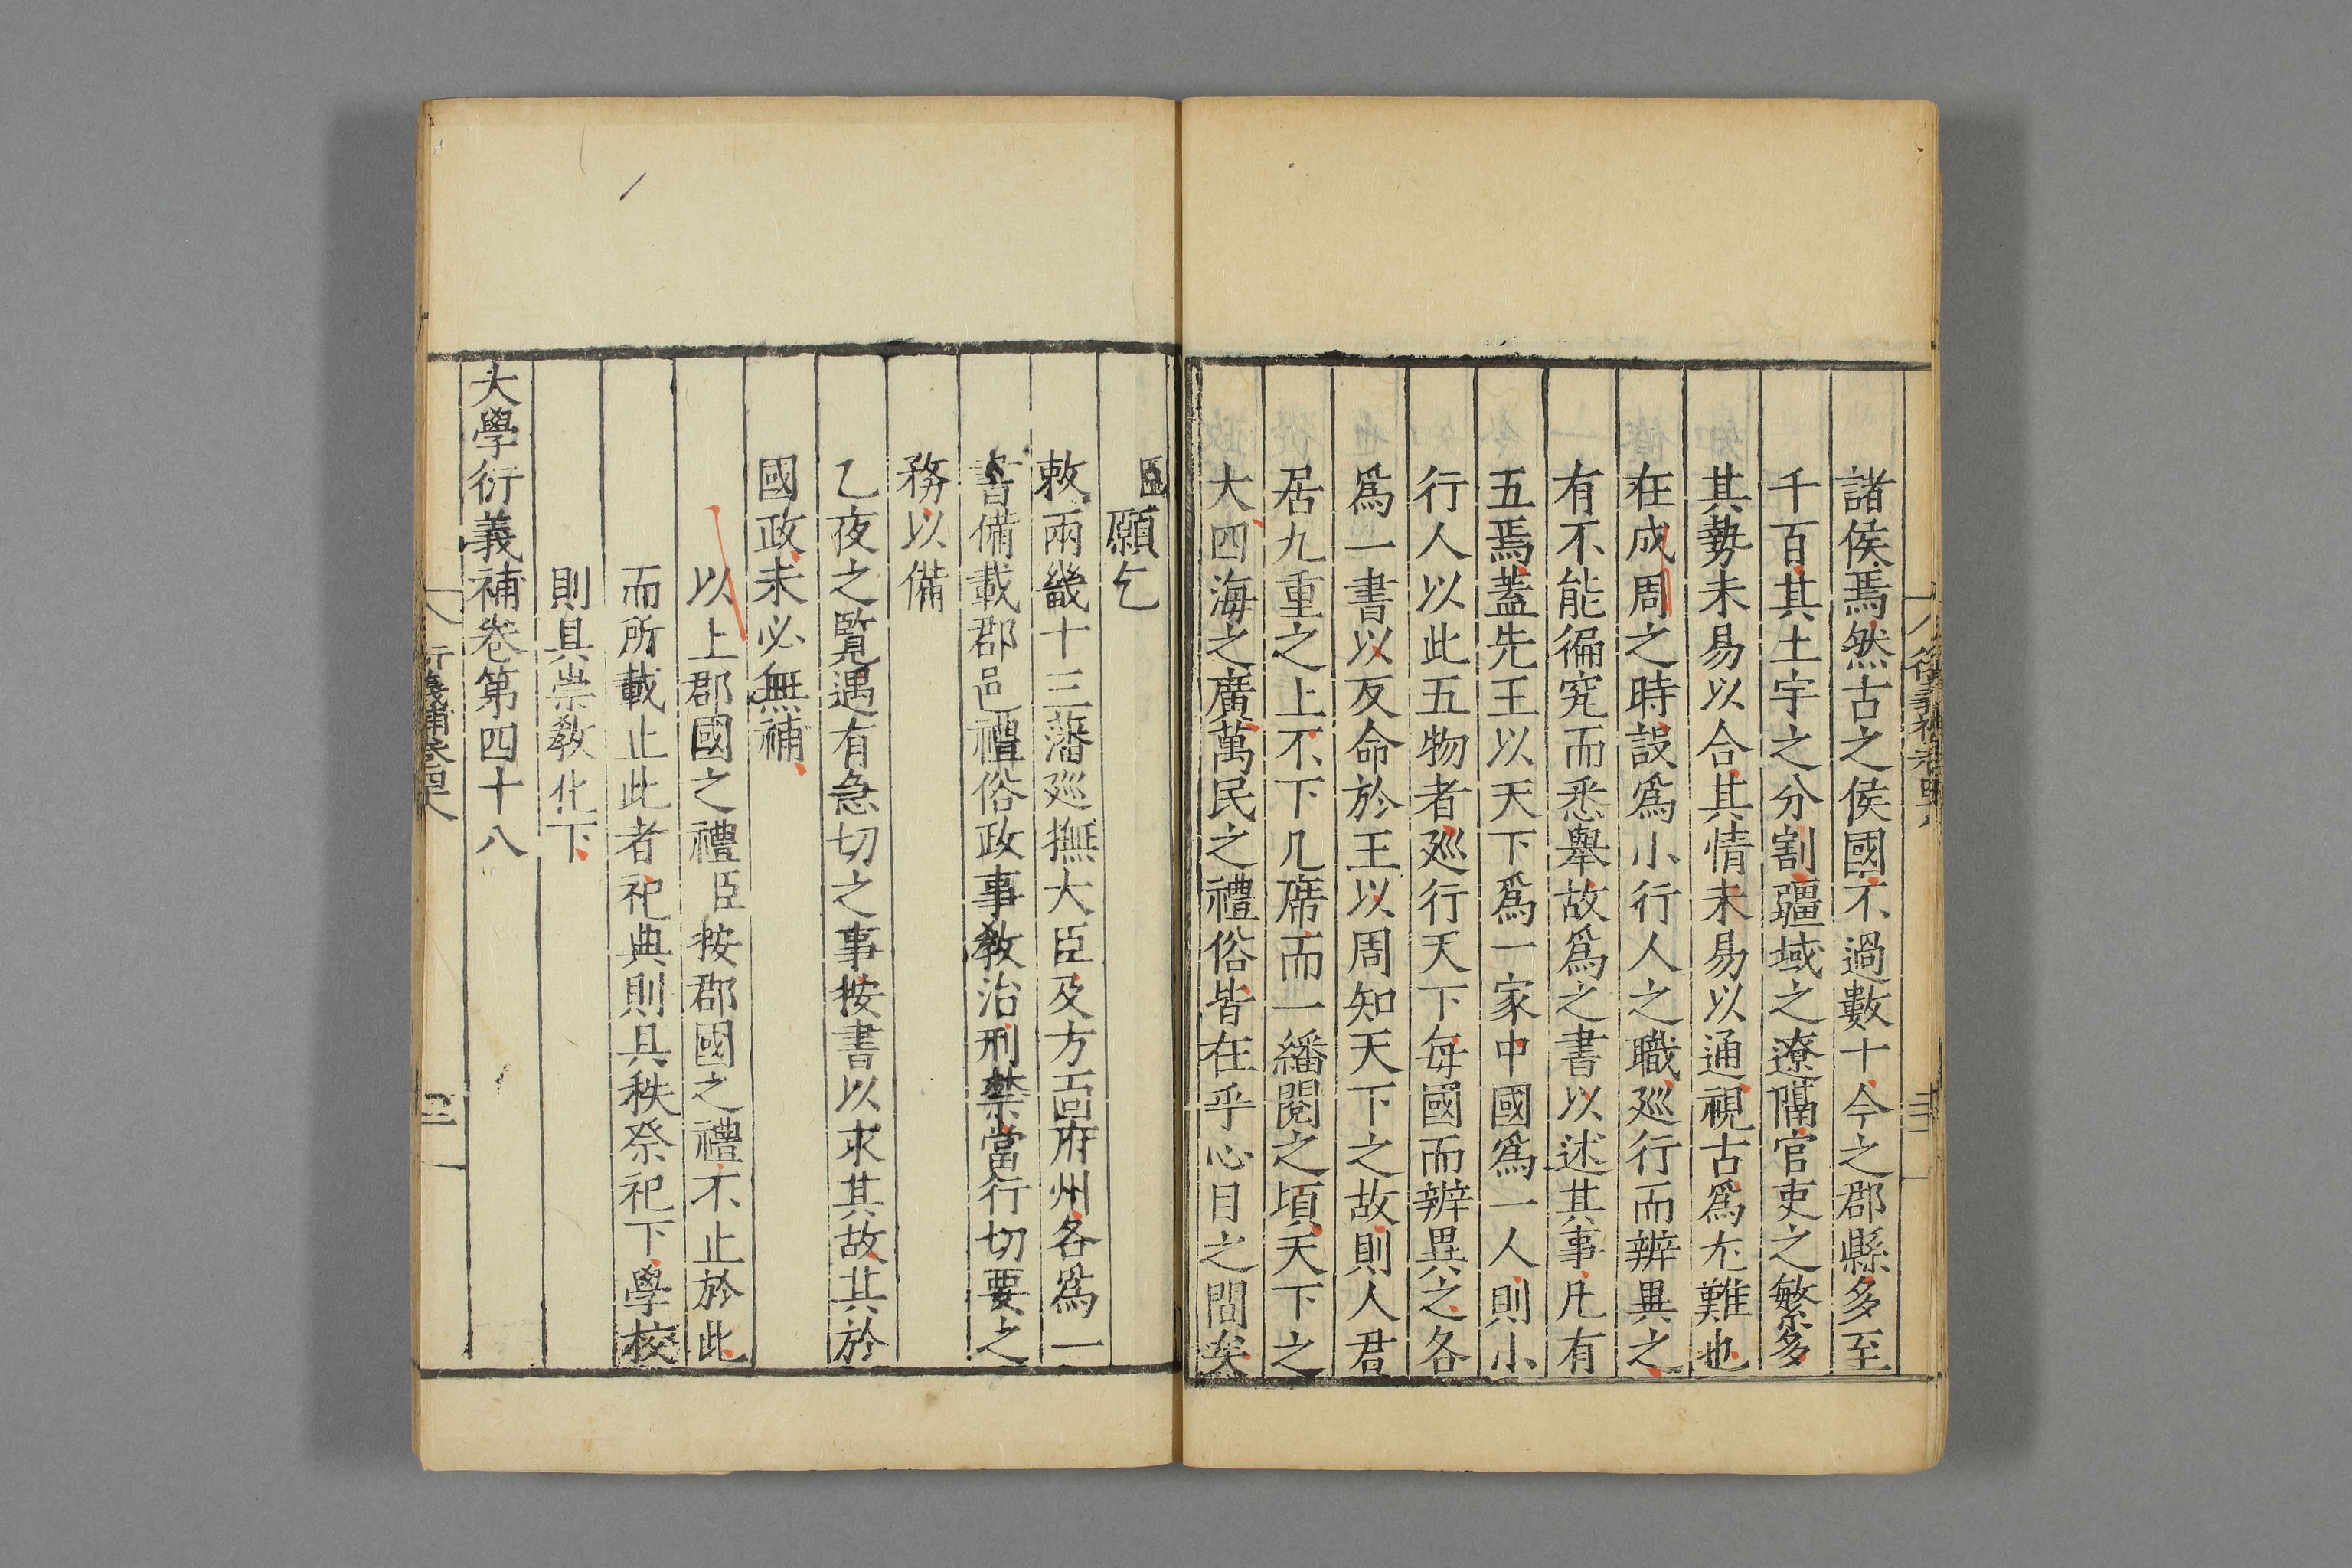 諸侯焉然古之侯國不過數十今之郡縣多至
千百其土宇之分割疆域之遼隔官吏之繁多
其勢未易以合其情未易以通視古爲尤難也
在成周之時設爲小行人之職巡行而辨異之
有不能徧究而悉舉故爲之書以述其事凡有
五焉蓋先王以天下爲一家中國爲一人則小
行人以此五物者巡行天下每國而辨異之各
爲一書以反命於王以周知天下之故則人君
居九重之上不下几席而一繙閱之頃天下之
大四海之廣萬民之禮俗皆在乎心目之間矣
臣願乞
敕兩畿十三藩巡撫大臣及方面府州各爲一
書備載郡邑禮俗政事教治刑禁當行切要之
務以備
乙夜之覽遇有急切之事按書以求其故其於
國政未必無補
以上郡國之禮臣按郡國之禮不止於此
而所載止此者祀典則具秩祭祀下學校
則具崇敎化下
大學衍義補卷第四十八